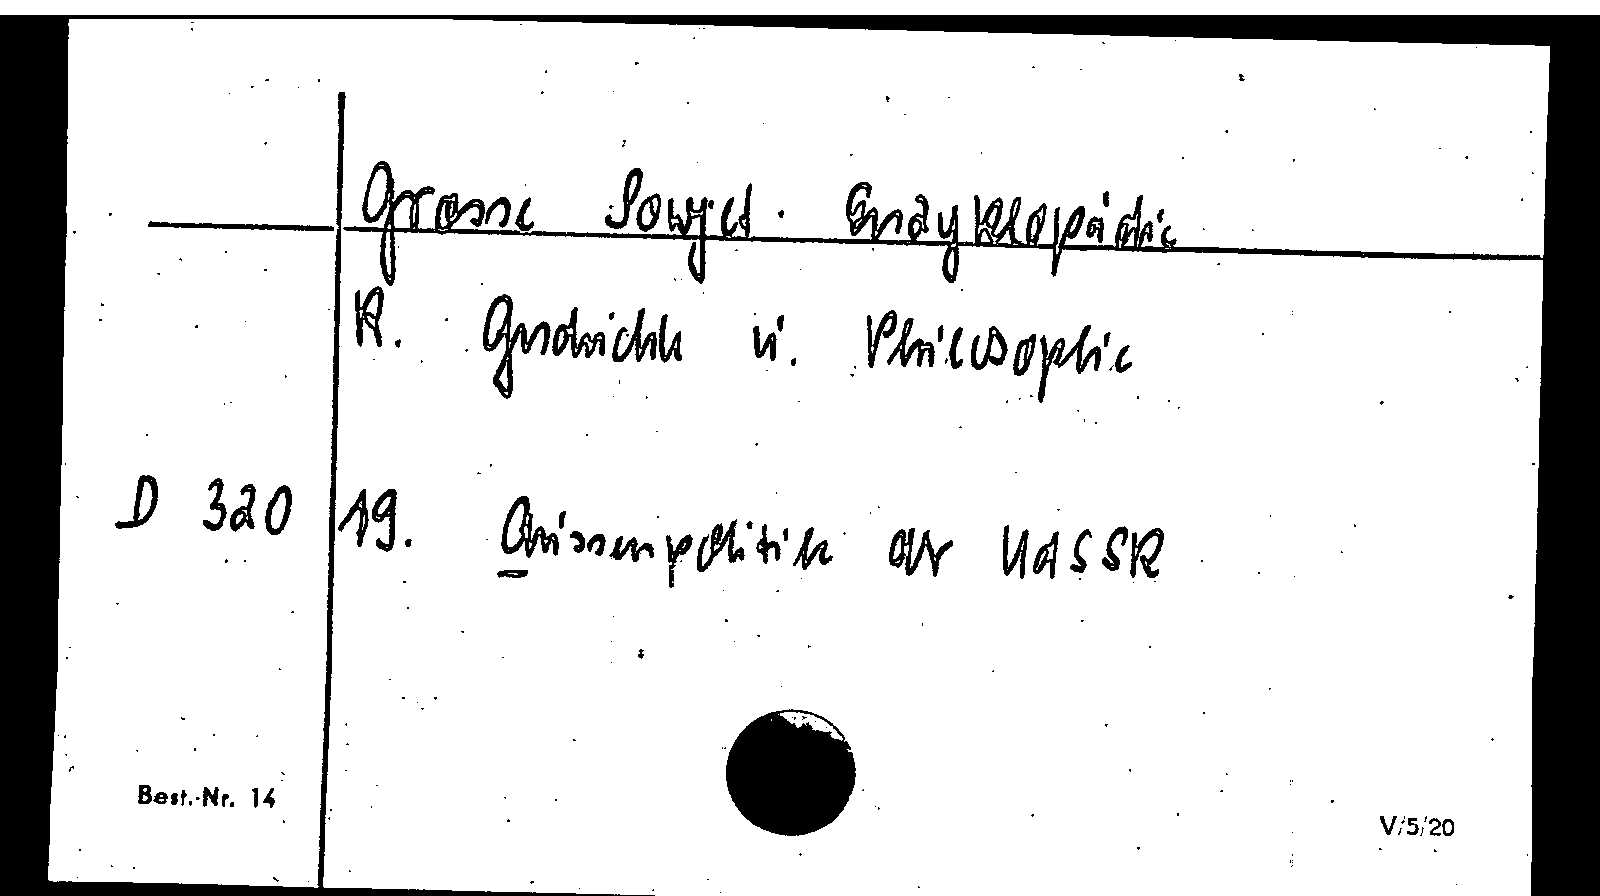 Grosse Sowjet. Enzyklopädie
R. Geschichte u. Philosophie
D 320 19. Aussenpolitik der UdSSR
Best.-Nr. 14
V/5/20